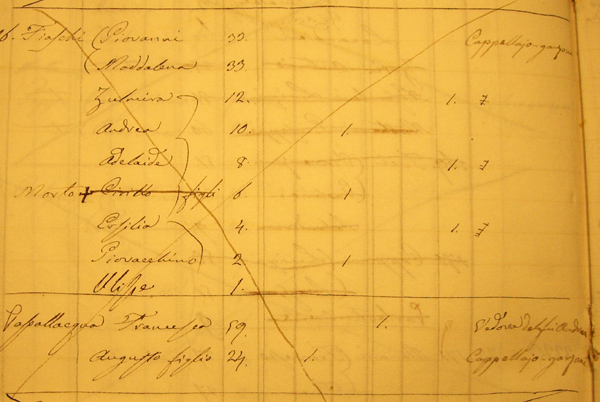 6. Fiaschi Giovanni 33. Cappellajo-garzone
Maddalena 33.
Zulmira 12. 1. 7
Andrea 10. 1
Adelaide 8. 1. 7
Morto + figli 6 1
Ersilia 4. 1. 7
Giovacchino 2. 1
Ulisse 1.
Passallacqua Francesca 59. 1. Vedova del fu Andrea
Augusto figlio 24. 1. Cappellajo-garzone